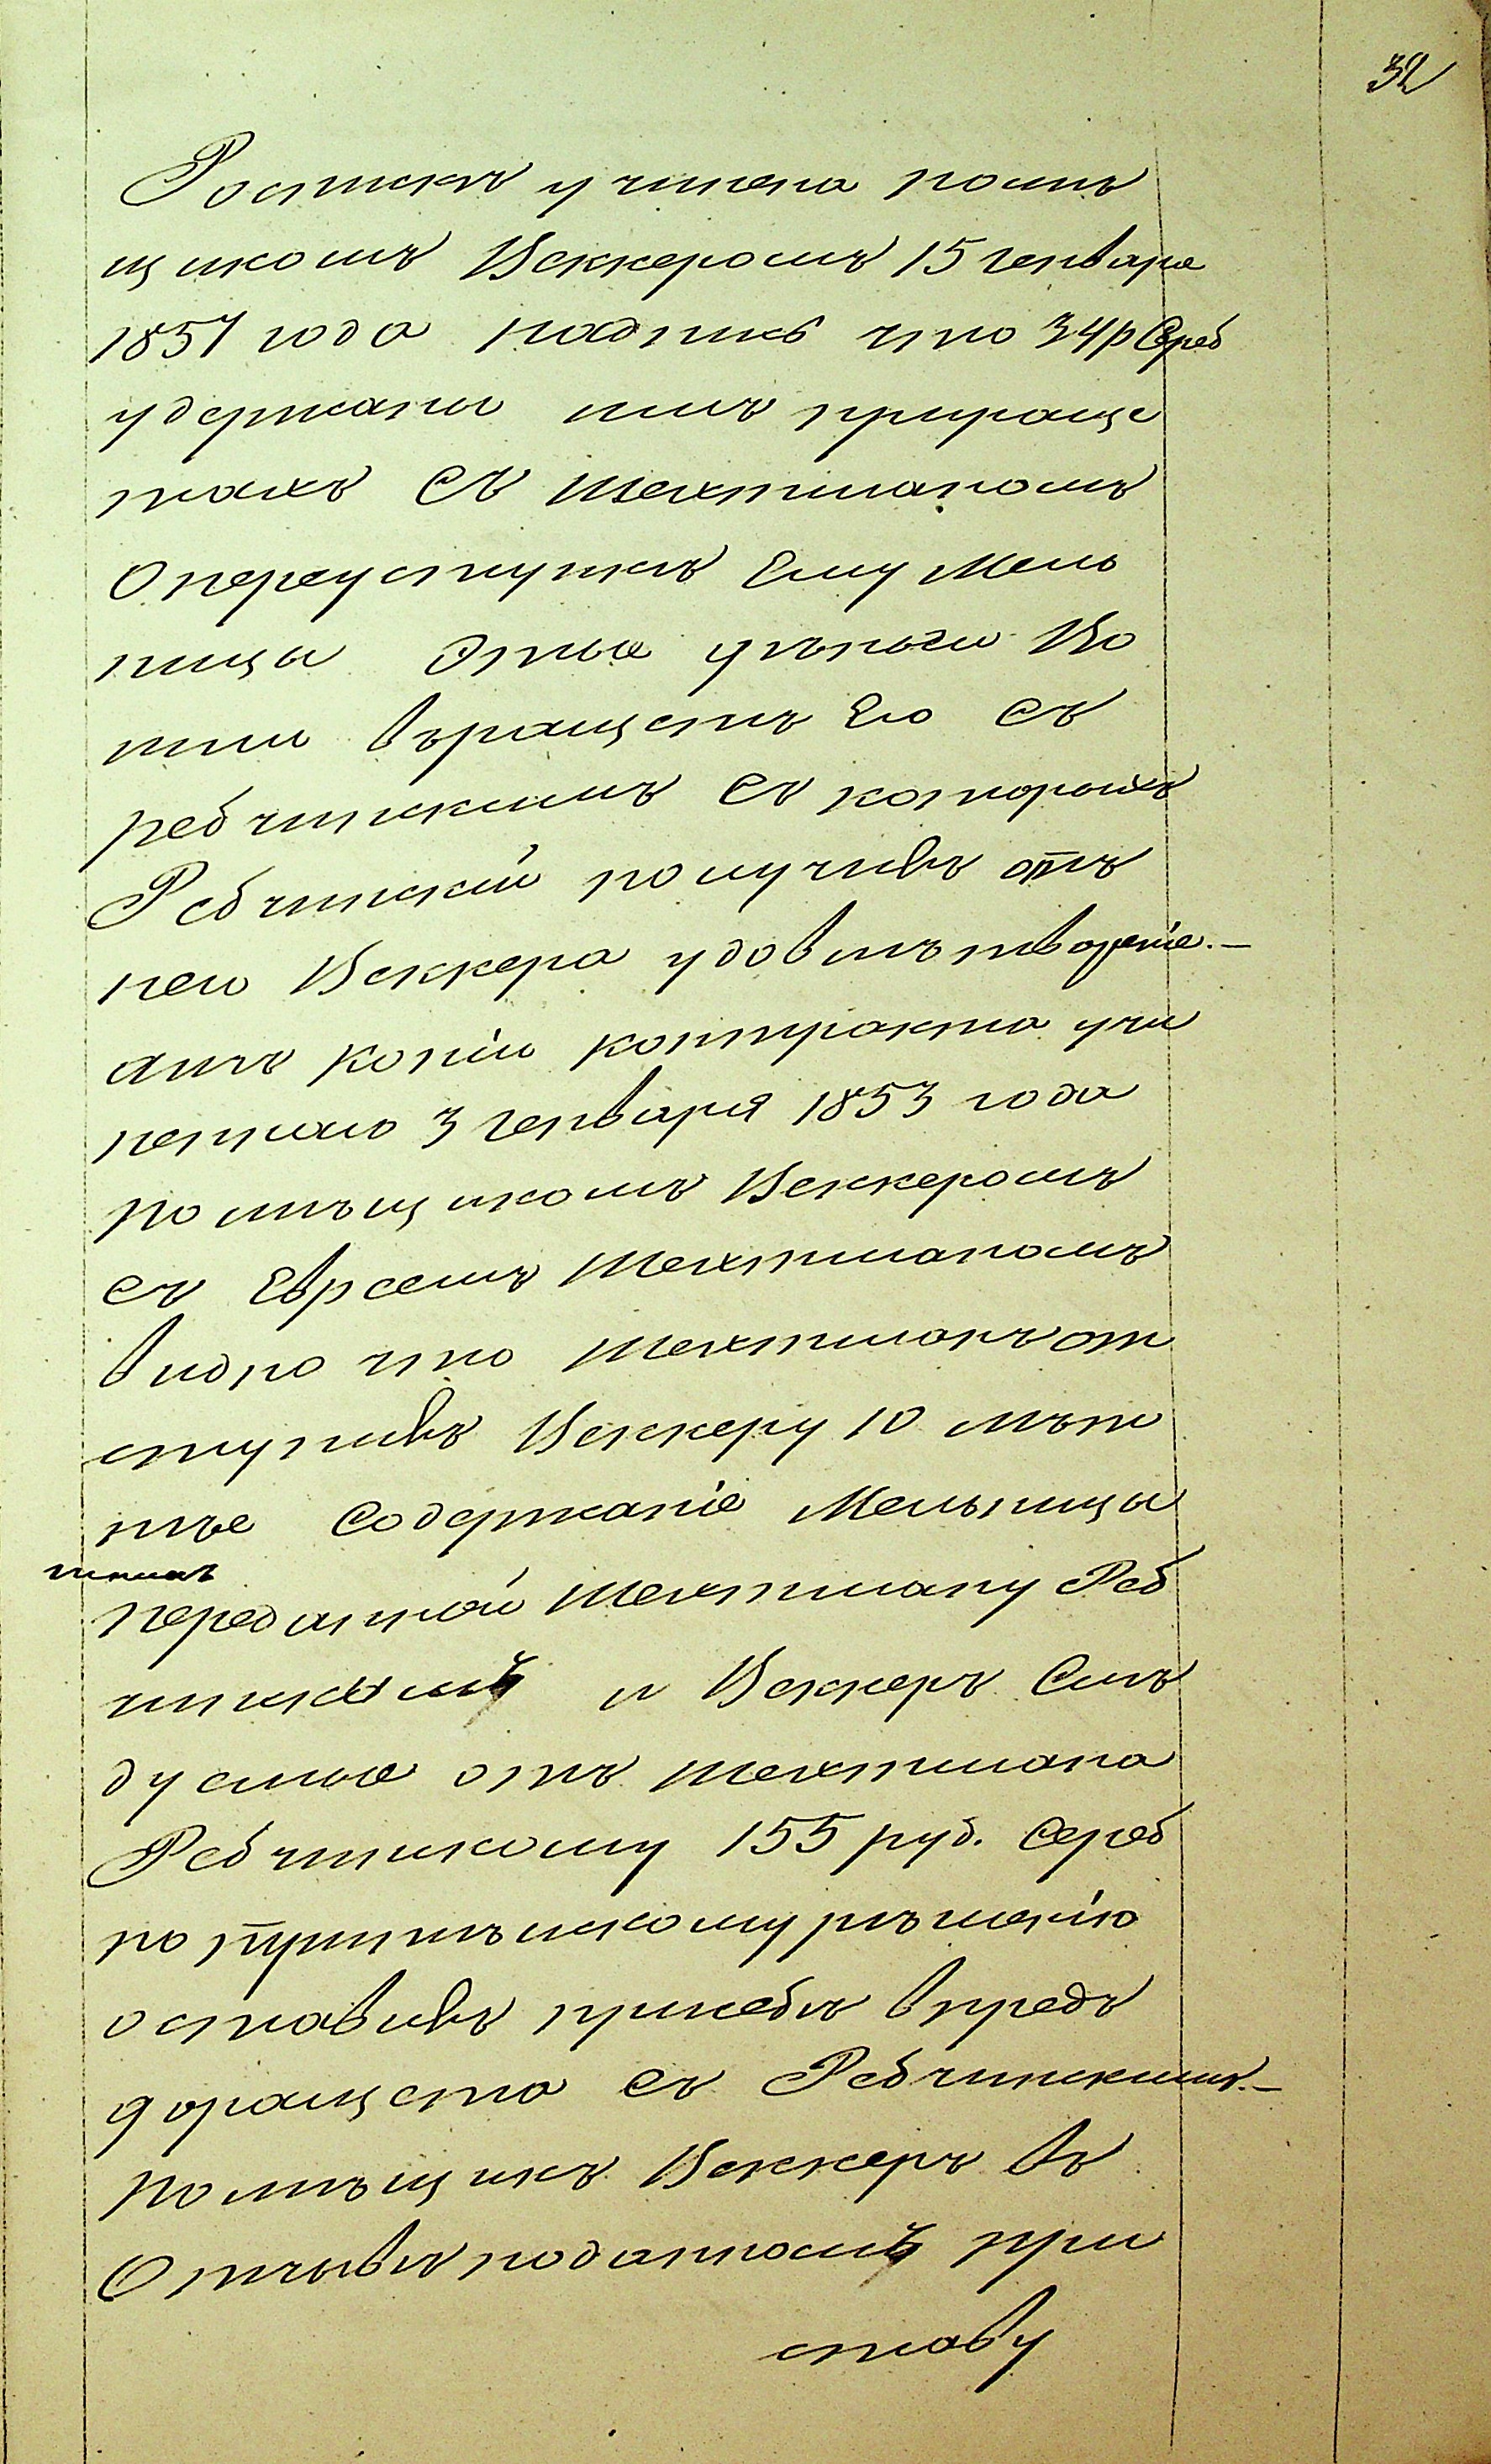 32
Роспискѣ учинена помѣ
щикомъ Веккеромъ 15 генваря
1857 года надпись что 34 р Сереб
удержаны имъ прираще
тахъ съ Шехтманомъ
О переуступкѣ Ему Мель
ницы Этые деньги Во
шли въращетъ Его съ
ребчинскимъ съ которымъ
Ребчинскій получивъ отъ
него Веккера удовлѣтвореніе.—
Ать копіи контракта учи
неннаго 3 Генваря 1853 года
помѣщикомъ Веккеромъ
съ Евреемъ Шехтманомъ
видно что Шехтманъ от
ступивъ Веккеру 10 лѣт
нѣе Содержаніе Мельницы
переданной Шехтману Реб
чинскимъ и Веккеръ Слѣ
дуемые отъ Шехтмана
Ребчинскому 155 руб. Сереб
по третѣйскому рѣшенію
оставивъ присебѣ впредъ
доращета съ Ребчинскимъ.—
Помѣщикъ Веккеръ въ
Отзывѣ поданномъ при
ставу